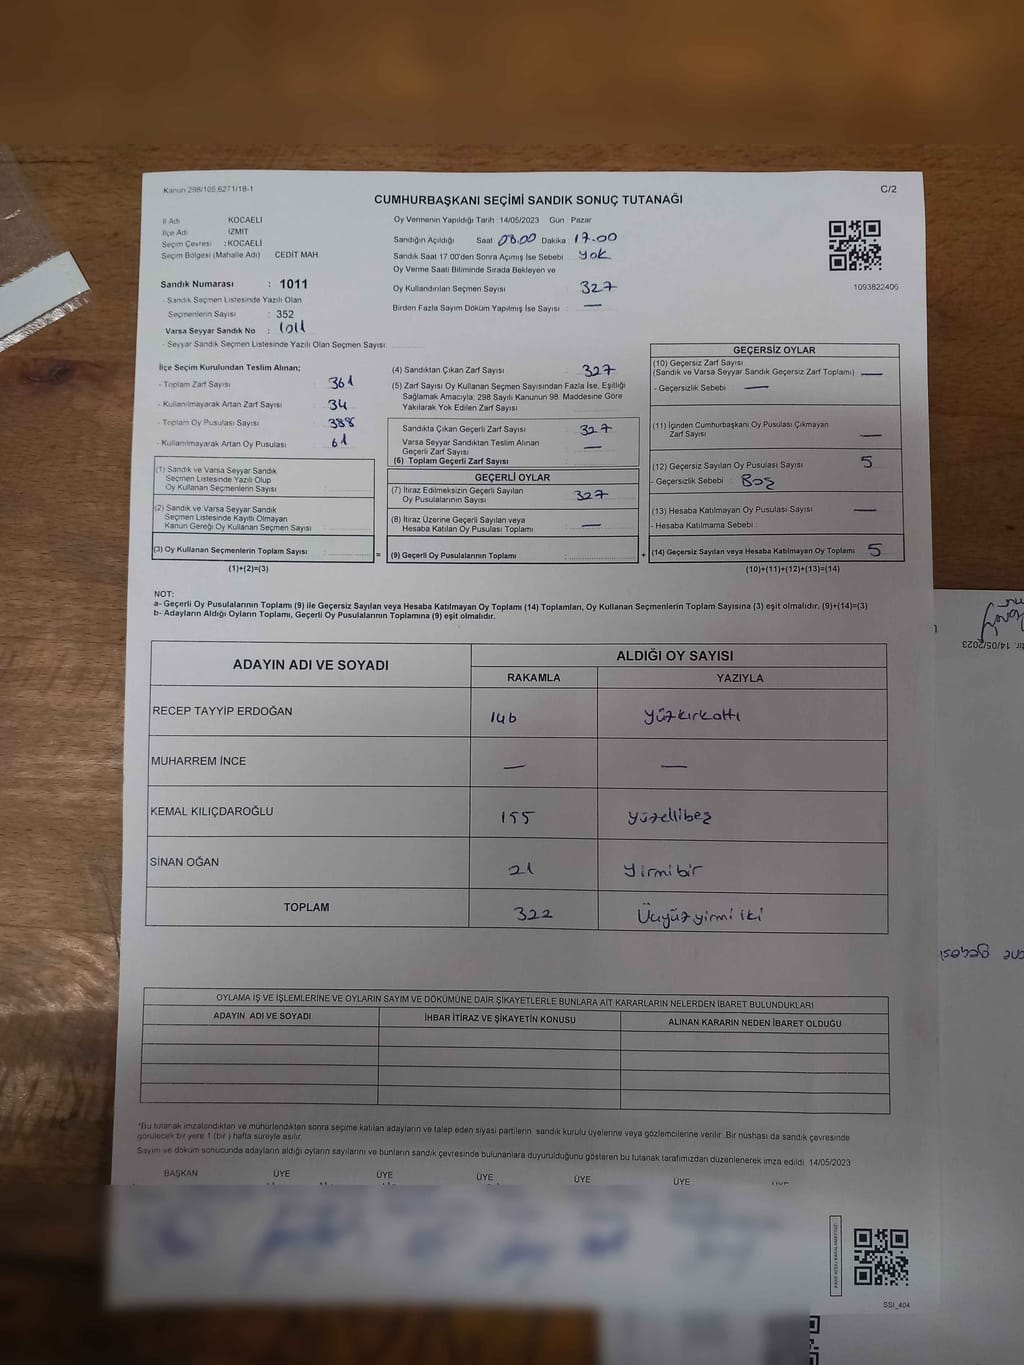 Kanun 298/105.6271/18-1
C/2
CUMHURBAŞKANI SEÇİMİ SANDIK SONUÇ TUTANAĞI
İl Adı KOCAELİ
İlçe Adı İZMİT
Seçim Çevresi : KOCAELİ
Seçim Bölgesi (Mahalle Adı) CEDİT MAH
Sandık Numarası : 1011
- Sandık Seçmen Listesinde Yazılı Olan
Seçmenlerin Sayısı : 352
Varsa Seyyar Sandık No : 1011
- Seyyar Sandık Seçmen Listesinde Yazılı Olan Seçmen Sayısı:
Oy Vermenin Yapıldığı Tarih :14/05/2023 Gün : Pazar
Sandığın Açıldığı Saat 08.00 Dakika : 17.00
Sandık Saat 17.00'den Sonra Açımış İse Sebebi yok
Oy Verme Saati Bitiminde Sırada Bekleyen ve
Oy Kullandırılan Seçmen Sayısı 327
Birden Fazla Sayım Döküm Yapılmış İse Sayısı : —
1093822406
İlçe Seçim Kurulundan Teslim Alınan;
- Toplam Zarf Sayısı : 361
- Kullanılmayarak Artan Zarf Sayısı : 34
- Toplam Oy Pusulası Sayısı : 388
- Kullanılmayarak Artan Oy Pusulası : 61
(1) Sandık ve Varsa Seyyar Sandık
Seçmen Listesinde Yazılı Olup
Oy Kullanan Seçmenlerin Sayısı
(2) Sandık ve Varsa Seyyar Sandık
Seçmen Listesinde Kayıtlı Olmayan
Kanun Gereği Oy Kullanan Seçmen Sayısı
(3) Oy Kullanan Seçmenlerin Toplam Sayısı :
(1)+(2)=(3)
(4) Sandıktan Çıkan Zarf Sayısı : 327
(5) Zarf Sayısı Oy Kullanan Seçmen Sayısından Fazla İse, Eşitliği
Sağlamak Amacıyla; 298 Sayılı Kanunun 98. Maddesine Göre
Yakılarak Yok Edilen Zarf Sayısı :
Sandıkta Çıkan Geçerli Zarf Sayısı : 327
Varsa Seyyar Sandıktan Teslim Alınan
Geçerli Zarf Sayısı : —
(6) Toplam Geçerli Zarf Sayısı :
GEÇERLİ OYLAR
(7) İtiraz Edilmeksizin Geçerli Sayılan
Oy Pusulalarının Sayısı : 327
(8) İtiraz Üzerine Geçerli Sayılan veya
Hesaba Katılan Oy Pusulası Toplamı : —
= (9) Geçerli Oy Pusulalarının Toplamı :
GEÇERSİZ OYLAR
(10) Geçersiz Zarf Sayısı
(Sandık ve Varsa Seyyar Sandık Geçersiz Zarf Toplamı) : —
- Geçersizlik Sebebi : —
(11) İçinden Cumhurbaşkanı Oy Pusulası Çıkmayan
Zarf Sayısı —
(12) Geçersiz Sayılan Oy Pusulası Sayısı 5
- Geçersizlik Sebebi : Boş
(13) Hesaba Katılmayan Oy Pusulası Sayısı —
- Hesaba Katılmama Sebebi :
+ (14) Geçersiz Sayılan veya Hesaba Katılmayan Oy Toplamı : 5
(10)+(11)+(12)+(13)=(14)
NOT:
a- Geçerli Oy Pusulalarının Toplamı (9) ile Geçersiz Sayılan veya Hesaba Katılmayan Oy Toplamı (14) Toplamları, Oy Kullanan Seçmenlerin Toplam Sayısına (3) eşit olmalıdır. (9)+(14)=(3)
b- Adayların Aldığı Oyların Toplamı, Geçerli Oy Pusulalarının Toplamına (9) eşit olmalıdır.
ADAYIN ADI VE SOYADI ALDIĞI OY SAYISI
RAKAMLA YAZIYLA
RECEP TAYYİP ERDOĞAN 146 yüzkırkaltı
MUHARREM İNCE — —
KEMAL KILIÇDAROĞLU 155 yüzellibeş
SİNAN OĞAN 21 yirmibir
TOPLAM 322 Üçyüzyirmi iki
OYLAMA İŞ VE İŞLEMLERİNE VE OYLARIN SAYIM VE DÖKÜMÜNE DAİR ŞİKAYETLERLE BUNLARA AİT KARARLARIN NELERDEN İBARET BULUNDUKLARI
ADAYIN ADI VE SOYADI İHBAR İTİRAZ VE ŞİKAYETİN KONUSU ALINAN KARARIN NEDEN İBARET OLDUĞU
*Bu tutanak imzalandıktan ve mühürlendikten sonra seçime katılan adayların ve talep eden siyasi partilerin sandık kurulu üyelerine veya gözlemcilerine verilir. Bir nüshası da sandık çevresinde
görülecek bir yere 1 (bir) hafta süreyle asılır.
Sayım ve döküm sonucunda adayların aldığı oyların sayılarını ve bunların sandık çevresinde bulunanlara duyurulduğunu gösteren bu tutanak tarafımızdan düzenlenerek imza edildi. 14/05/2023
BAŞKAN ÜYE ÜYE ÜYE ÜYE ÜYE
SSI_404
14/05/2023